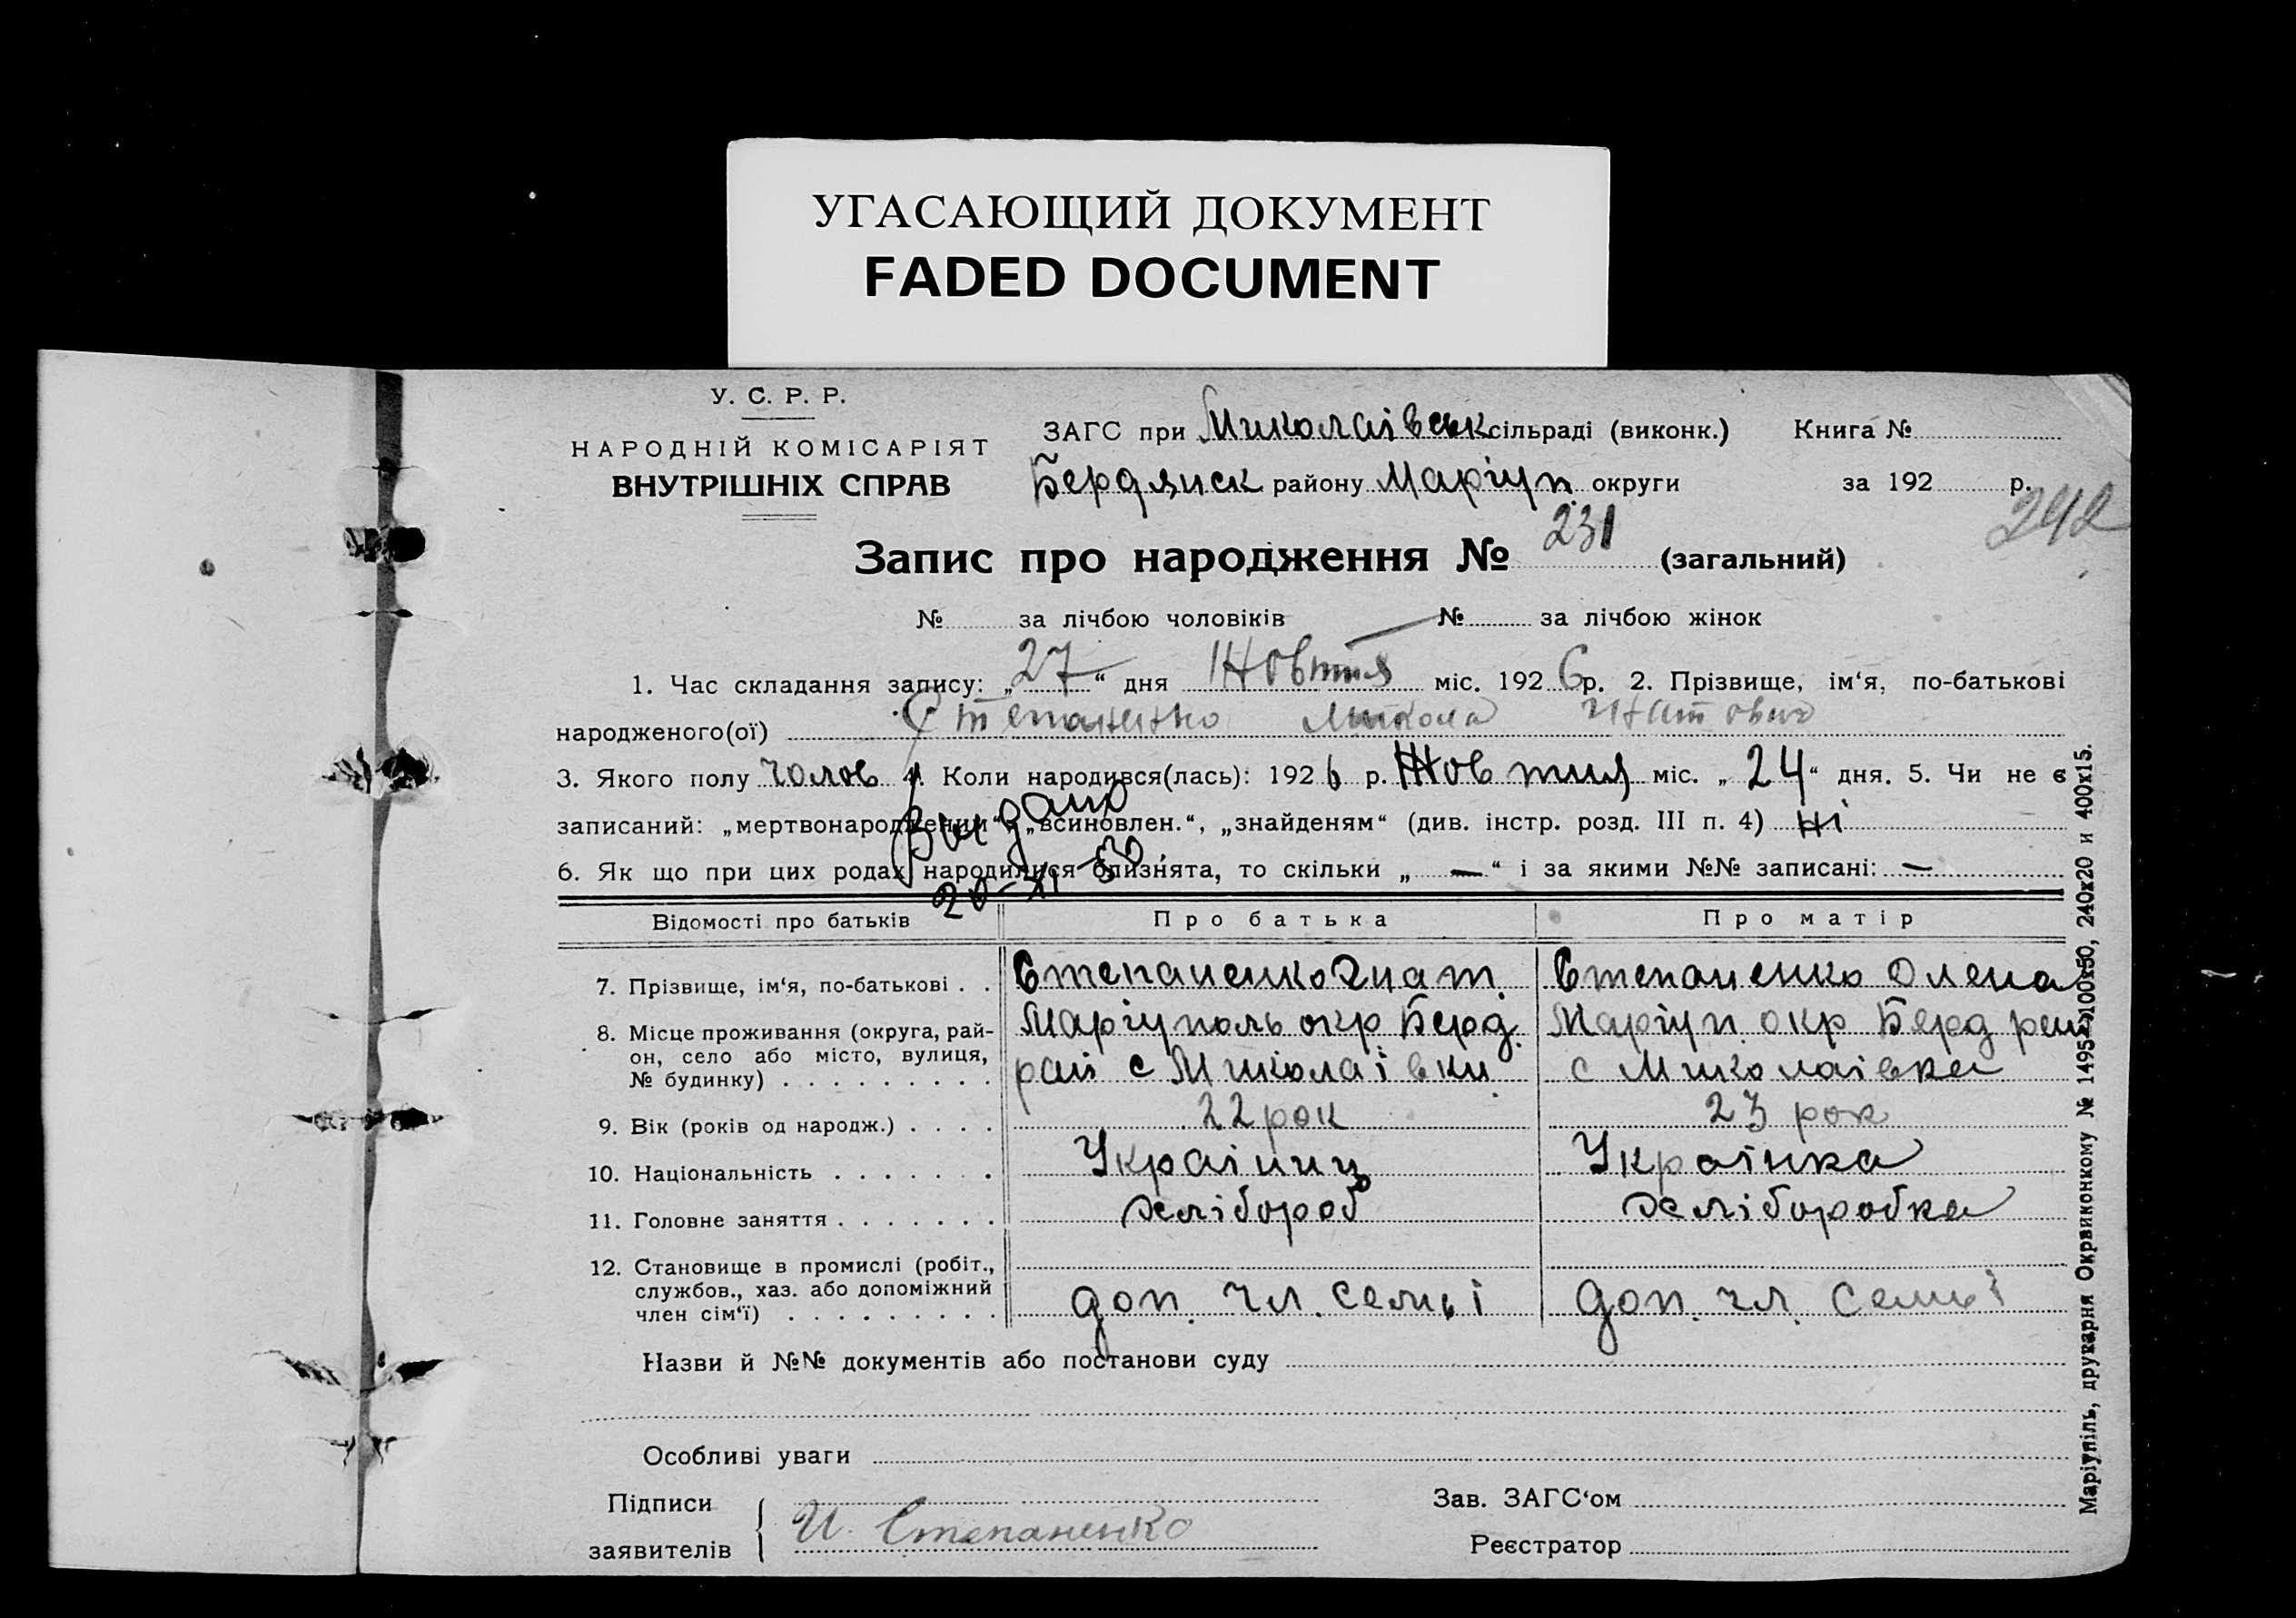 УГАСАЮЩИЙ ДОКУМЕНТ
FADED DOCUMENT
У. С. Р. Р.
НАРОДНІЙ КОМІСАРІЯТ
ВНУТРІШНІХ СПРАВ
ЗАГС при Миколаівськ сільраді (виконк.) Книга №
Бердянск району Маріуп. округи за 192 р.
242
Запис про народження № 231 (загальний)
№ за лічбою чоловіків № за лічбою жінок
1. Час складання запису: „27“ дня Жовтня міс. 1926 р. 2. Прізвище, ім‘я, по-батькові
народженого(ої) Степаненко Микола Игнатович
3. Якого полу чолов 4. Коли народився(лась): 1926 р. Жовтня міс. „24“ дня. 5. Чи не є
записаний: „мертвонародженим“, „всиновлен.“, „знайденям“ (див. інстр. розд. III п. 4) ні
6. Як що при цих родах народилися близнята, то скільки „—“ і за якими №№ записані: —
20-XI-30
Відомості про батьків Про батька Про матір
7. Прізвище, ім‘я, по-батькові . . Степаненко Гнат. Степаненко Олена
8. Місце проживання (округа, рай- Маріуполь окр. Берд. Маріуп. окр Берд рай
он, село або місто, вулиця, рай с Миколаівки с Миколаівка
№ будинку) . . . . . . . . .
9. Вік (років од народж.) . . . . 22 рок 23 рок
10. Національність . . . . . . . Украінц Украінка
11. Головне заняття . . . . . . . Хлібороб Хліборобка
12. Становище в промислі (робіт.,
службов., хаз. або допоміжний доп. чл. семьі доп. чл. семьі
член сім‘ї) . . . . . . . . .
Назви й №№ документів або постанови суду
Особливі уваги
Підписи Зав. ЗАГС‘ом
заявителів И. Степаненко Реєстратор
Маріупіль, друкарня Окрвиконкому № 1495—100х50, 240х20 и 400х15.